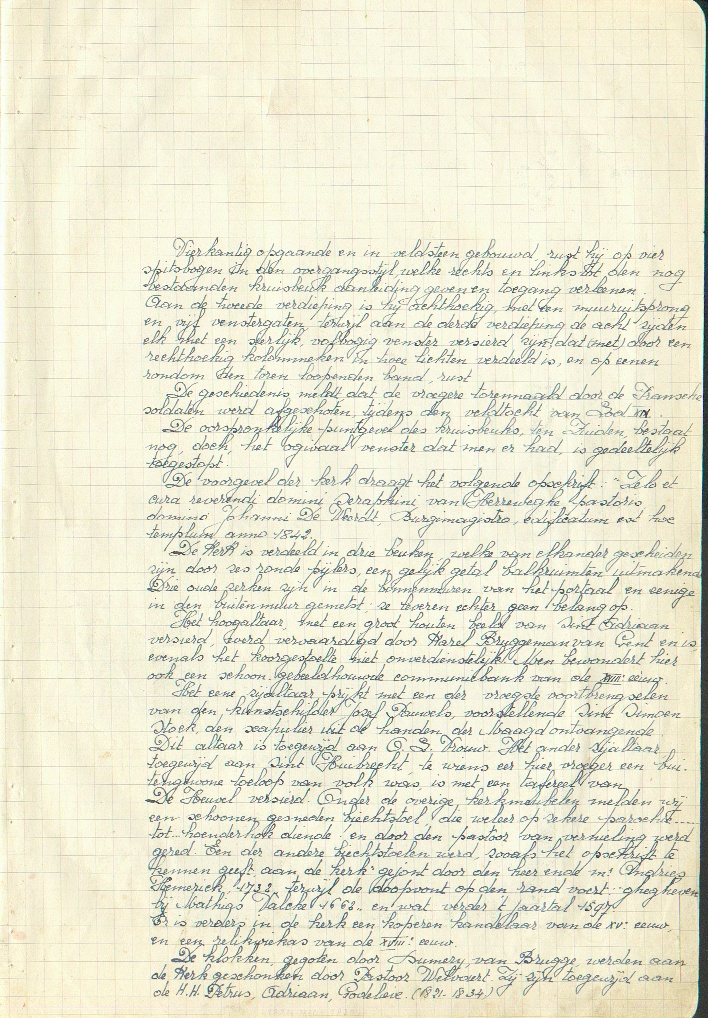 Vierkantig opgaande en in veldsteen gebouwd rust hij op vier
spitsbogen in den overgangsstijl, welke rechts en links tot den nog
bestaanden kruisbeuk aanleiding geven en toegang verleenen.
Aan de tweede verdieping is hij achthoekig, met een muuruitsprong
en vijf venstergaten, terwijl aan de derde verdieping de acht zijden
elk met een sierlijk, volbogig venster versierd zijn (dat met) door een
rechthoekig kolommeken in twee lichten verdeeld is, en op eenen
rondom den toren loopenden band, rust
De geschiedenis meldt dat de vroegere torennaald door de Fransche
soldaten werd afgeschoten, tijdens den veldtocht van Lod XIV.
De oorspronkelijke puntgevel des kruisbeuks, ten Zuiden, bestaat
nog, doch, het ogivaal venster dat men er had, is gedeeltelijk
toegestopt.
De voorgevel der kerk draagt het volgende opschrift: "Zelo et
cura reverendi domini Seraphini van Herreweghe pastoris
domino Johanni De Weerdt, Burgemagistro, edificatum est hoc
templum anno 1842.
De Kerk is verdeeld in drie beuken, welke van elkander gescheiden
zijn door zes ronde pijlers, een gelijk getal balkruimten uitmakend
Drie oude zerken zijn in de binnenmuren van het portaal en eenige
in den buitenmuur gemetst; ze leveren echter geen belang op.
Het hoogaltaar, met een groot houten beeld van Sint Adriaan
versierd, werd vervaardigd door Karel Bruggeman van Gent en is,
evenals het koorgestoelte niet onverdienstelijk! Men bewondert hier
ook een schoon, gebeeldhouwde communiebank van de XVIIIe eeuw.
Het eene zijaltaar prijkt met een der vroegste voortbrengselen
van den kunstschilder Jozef Pauwels, voorstellende Sint Simoen
Stock, den scapulier uit de handen der Maagd ontvangende
Dit altaar is toegewijd aan O. L. Vrouw. Het ander zijaltaar
toegewijd aan Sint Huibrecht, te wiens eer hier vroeger een bui-
tengewone toeloop van volk was, is met een tafereel van
De Heuvel versierd. Onder de overige kerkmeubelen melden wij
een schoonen gesneden biechtstoel, die weleer op zekere parochie.....
tot hoenderhok diende en door den pastoor van vernieling werd
gered. Een der andere biechtstoelen werd, zooals het opschrift te
kennen geeft, aan de kerk: gejont door den heer ende mr Andries
Hemerick, 1732, terwijl de doopvont op den rand voert: ghegheven
bij Mathijs Valcke 1662. en wat verder 't jaartal 1597.
Er is verders in de kerk een koperen kandelaar van de XVe eeuw
en een relikwiekas van de XVIIIe eeuw.
De klokken, gegoten door Dumery van Brugge, werden aan
de Kerk geschonken door Pastoor Welvaert Zij zijn toegewijd aan
de H.H. Petrus, Adriaan, Godelieve. (1821-1834)